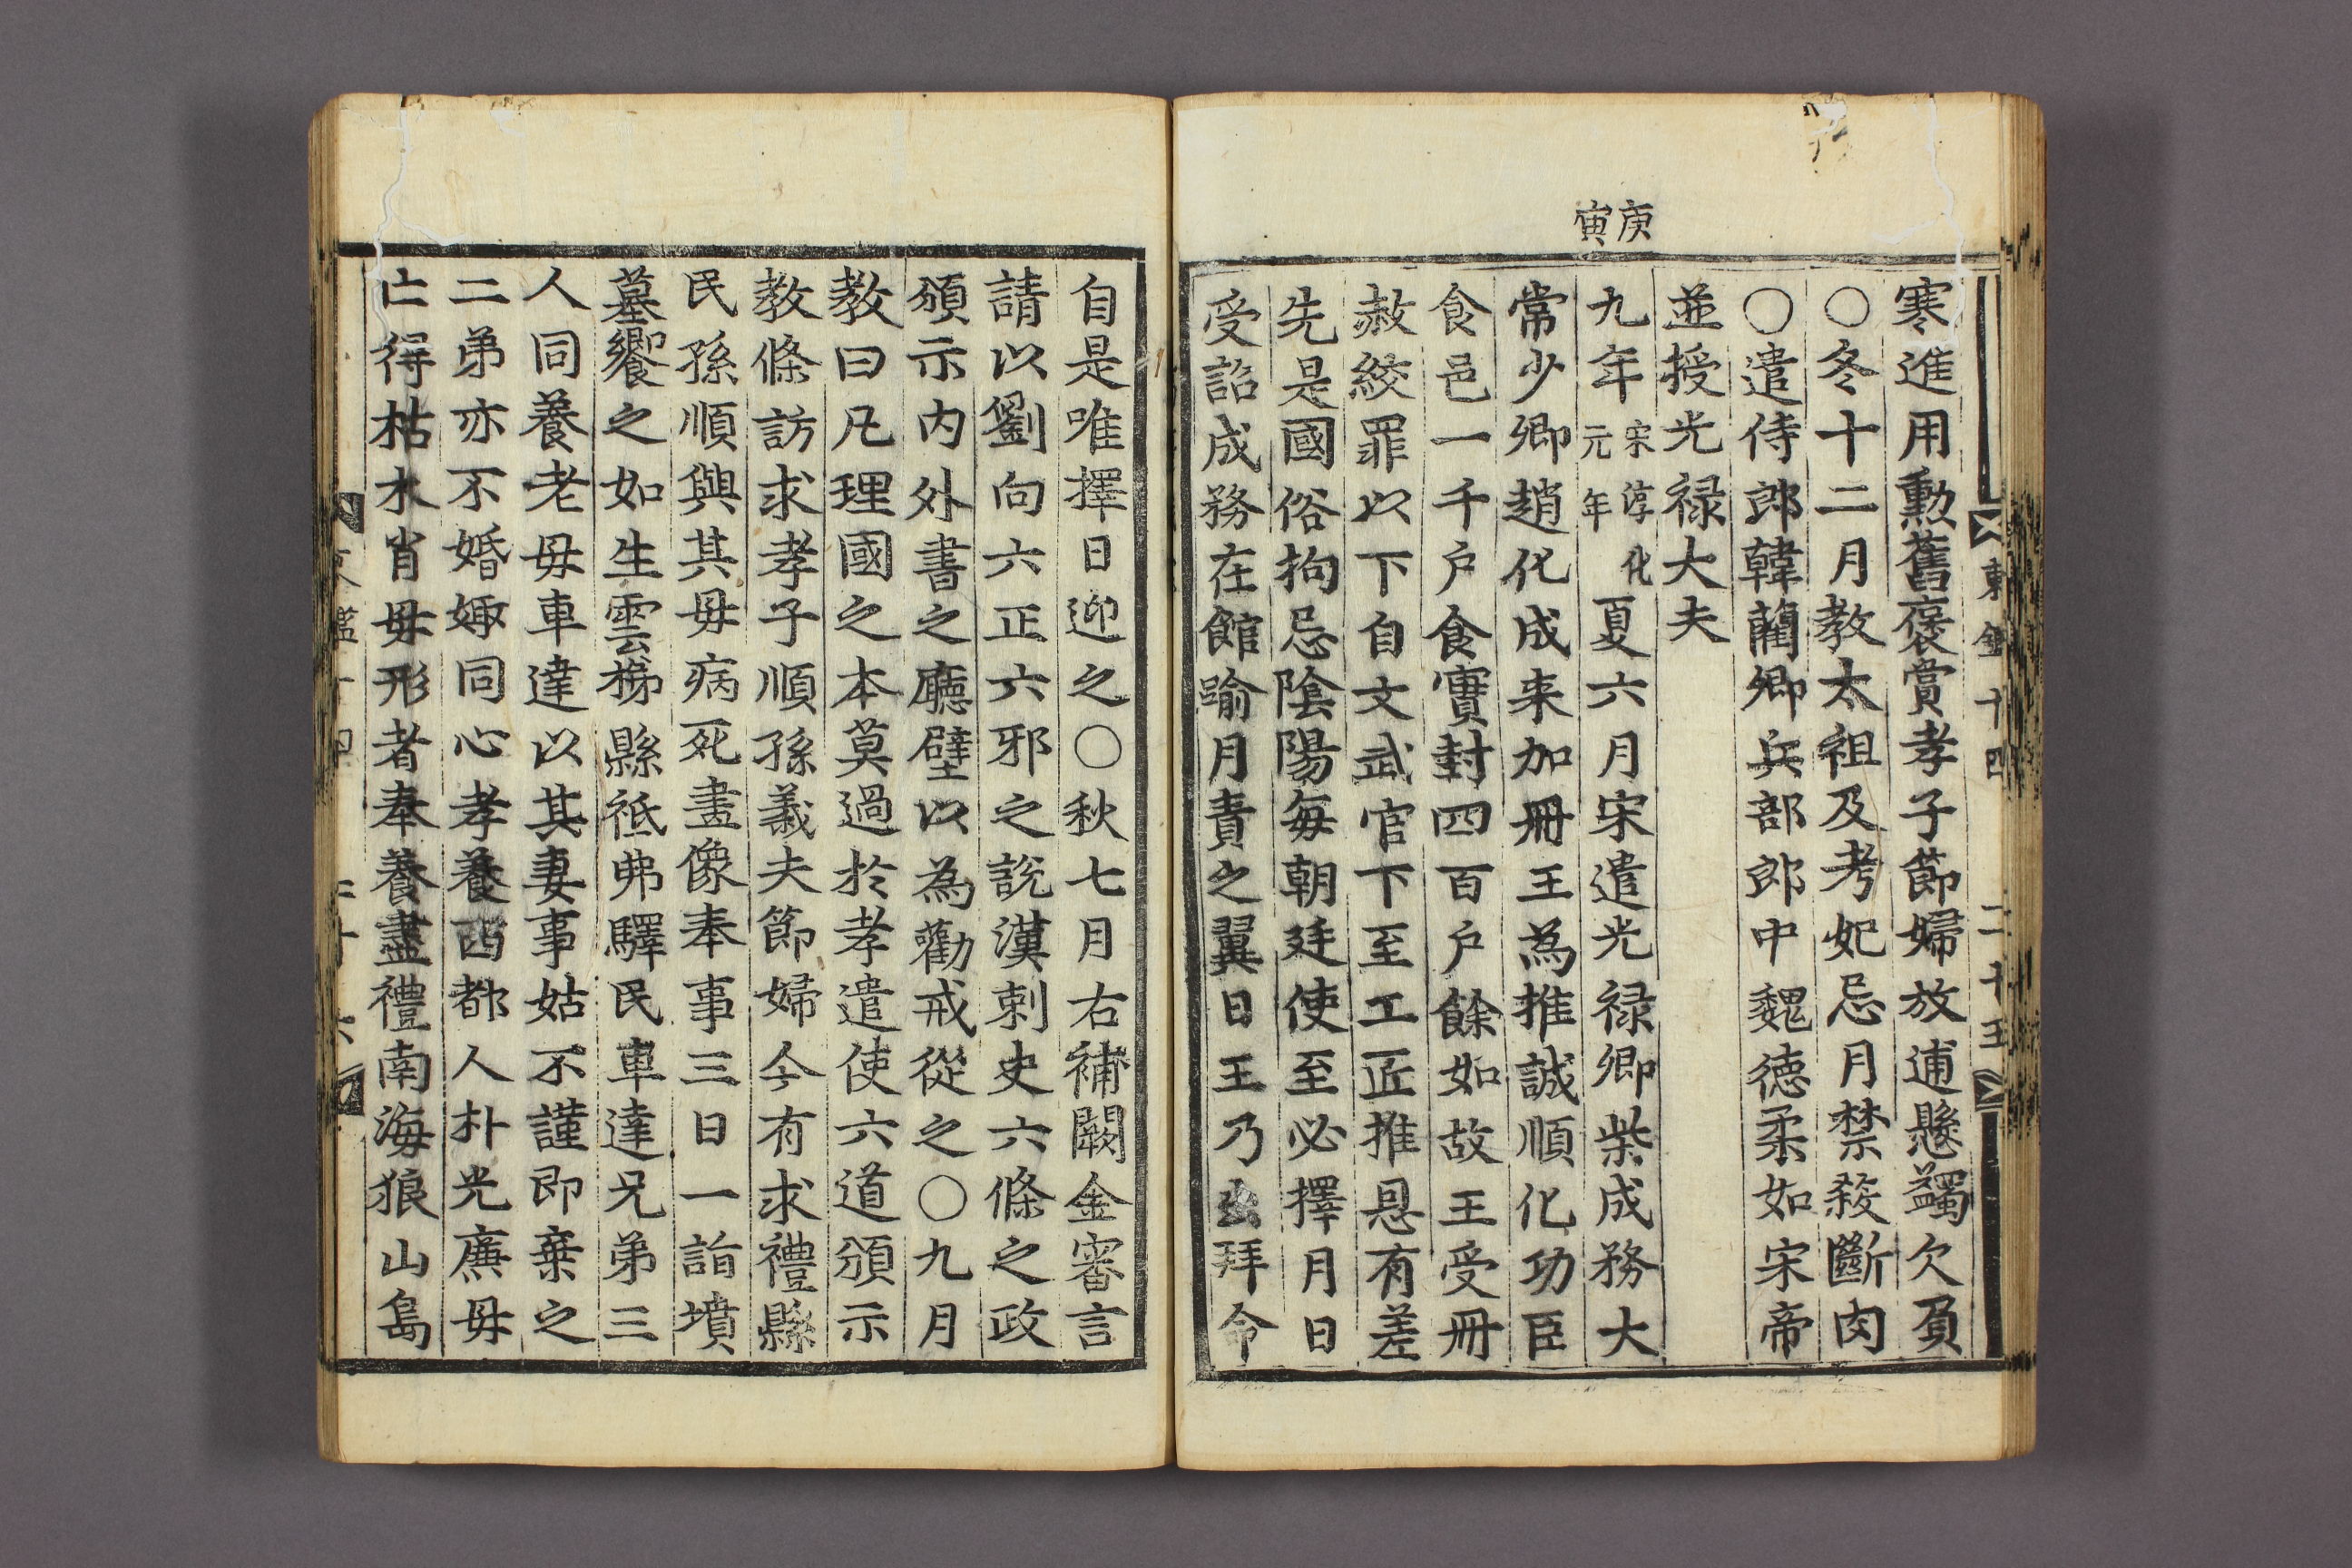 東鑑十四
二十五
寒進用勲舊褒賞孝子節婦放逋懸蠲欠負
○冬十二月教太祖及考妣忌月禁殺斷肉
○遣侍郎韓藺卿兵部郎中魏德柔如宋帝
並授光祿大夫
庚寅
九年宋淳化元年夏六月宋遣光祿卿柴成務大
常少卿趙化成来加冊王為推誠順化功臣
食邑一千户食實封四百户餘如故王受冊
赦絞罪以下自文武官下至工匠推恩有差
先是國俗拘忌陰陽每朝廷使至必擇月日
受詔成務在館踰月責之翼日王乃出拜令
自是唯擇日迎之○秋七月右補闕金審言
請以劉向六正六邪之說漢刺史六條之政
頒示內外書之廳壁以為勸戒從之○九月
教曰凡理國之本莫過於孝遣使六道頒示
教條訪求孝子順孫義夫節婦今有求禮縣
民孫順興其母病死畫像奉事三日一詣墳
墓饗之如生雲梯縣祗弗驛民車達兄弟三
人同養老母車達以其妻事姑不謹即棄之
二弟亦不婚娵同心孝養西都人朴光廉母
亡得枯木肖母形者奉養盡禮南海狼山島
鑑十四